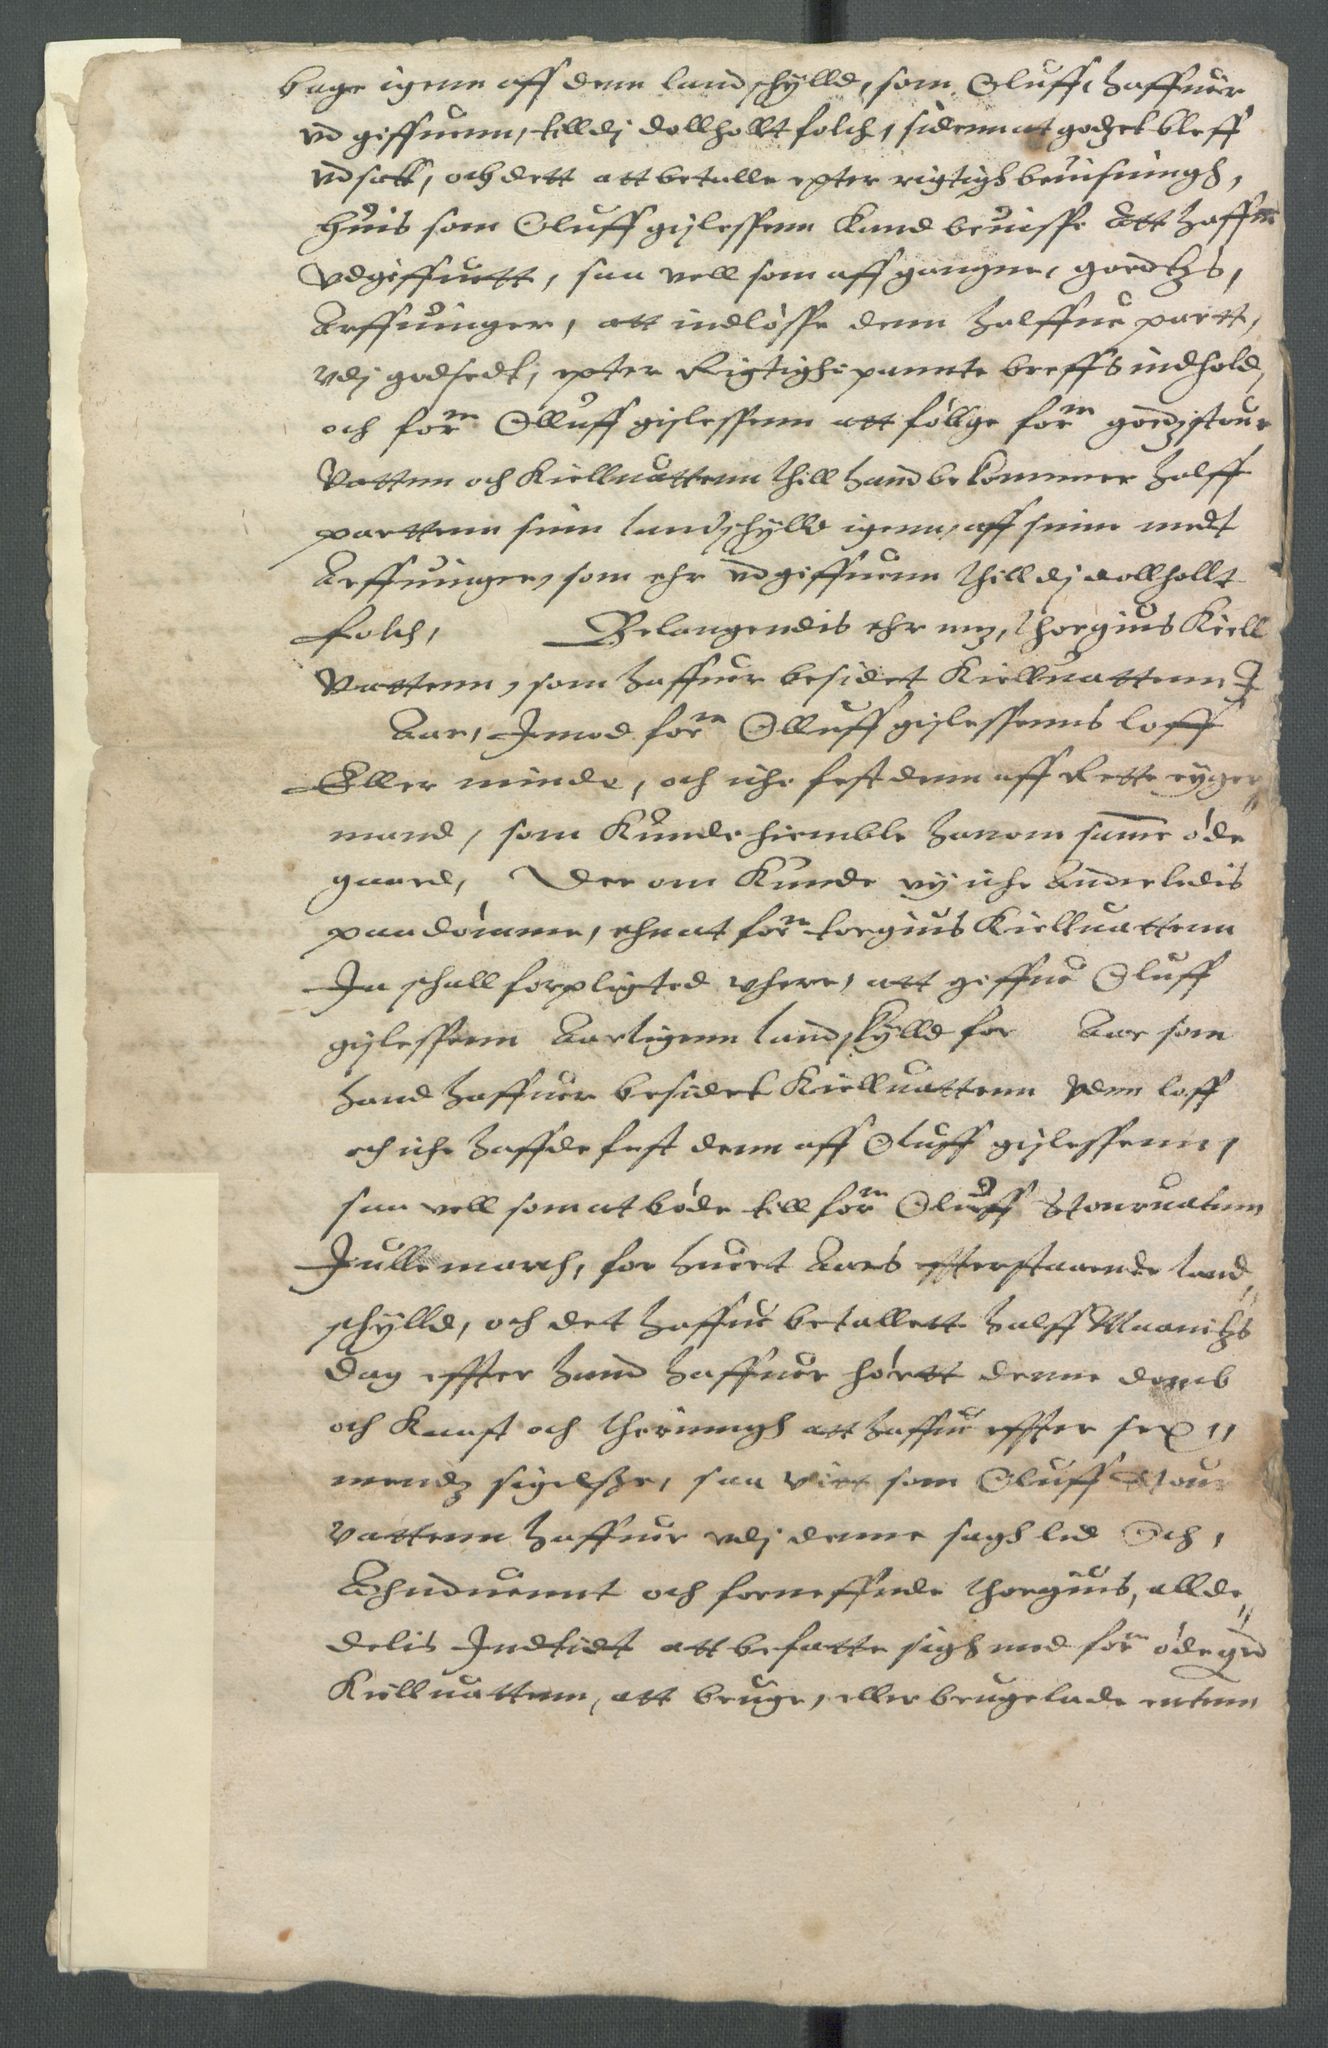 bage igenn aff denn landschylld, som Oluff, haffuer
vd giffuenn, till dj dollhollt folch, sidenn at godzet bleff
vdsatt, och dett att betalle epter rigtigh beuisningh,
huis som Oluff gislessenn kand beuisse Att haffue
vdgiffuett, saa vell som aff gangne, goedtzs,
Arffuinger, att indløsse denn halffue partt,
vdj godsedt, epter Rigtighe pannte breffs indhold,
och forne Olluff gislessenn att føllge forne godz stour
Vattnn och Kielluattenn thill hand bekommer halff
parttenn sinn landschylld igenn, aff sinne med
Arffuinger, som ehr vdgiffuenn thill dj dollhollt
folch, Belangendis ehr mz, thorgius Kiell
Vattenn, som haffuer besidet Kielluattenn I
Aar, Imod forne Olluff gislessenns loff
Eller minde, och iche fest denn aff Rette eyger
mand, som kunde hiemble hanom same øde
gaard, Der om kunde vy iche Anderledis
paadømme, ehnat forne torgius Kielluattenn
Ia schall forpligted vhere, att giffue Oluff
gislessenn Aarligenn landskylld for Aar som
hand haffuer besidet Kielluattenn vdenn loff
och iche haffde fest denn aff Oluff gislessenn,
saa vell som at bøde till forne Oluff Stouruatnn
Iullemarch, for huert Aars effterstaaende land
schylld, och det haffue betallett halff Maanitzs
dag effter hand haffuer hørtt denne domb
och Kaast och theringh att haffue effter sex
mendz sigelsze, saa vitt som Oluff Stour
vattenn haffuer vdj denne sagh led Och,
Ahnduennt och forneffnde thorgius, allde
delis Indtidt att befatte sigh med forne ødegrd
Kielluattenn, att bruge, eller brugelade entenn